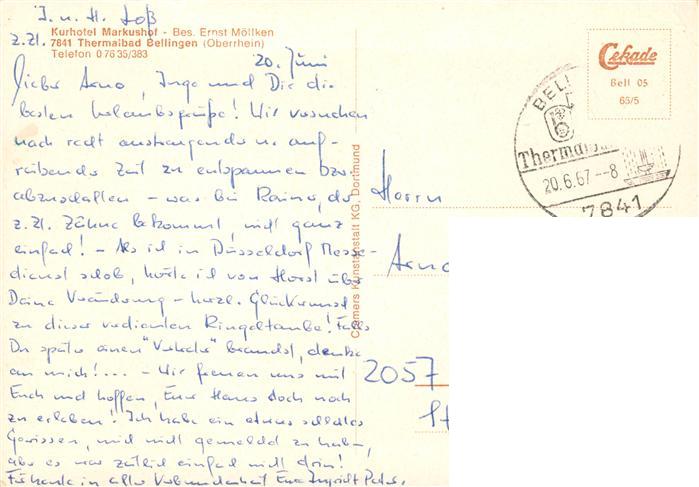 J. u. H. Loß
Kurhotel Markushof - Bes. Ernst Möllken
z. Zt. 7841 Thermalbad Bellingen (Oberrhein)
Telefon 0 76 35/383
20. Juni
Lieber Arno, Inge und Dir die
besten Urlaubsgrüße! Wir versuchen
nach recht anstrengender u. auf-
reibender Zeit zu entspannen bzw.
abzuschalten - was bei Rainer, der
z. Zt. Zähne bekommt, nicht ganz
einfach! - Als ich in Düsseldorf Messe-
dienst schob, hörte ich von Horst über
Deine Veränderung - herzl. Glückwunsch
zu dieser verdienten Ringeltaube! Falls
Du später einen "Verkäufer" brauchst, denke
an mich!... - Wir freuen uns mit
Euch und hoffen, Euer Haus doch noch
zu erleben! Ich habe ein etwas schlechtes
Gewissen, mich nicht gemeldet zu hab-,
aber es war zeitlich einfach nicht drin!
Für heute in alter Verbundenheit Eure Ingrid + Peter.
Cramers Kunstanstalt KG, Dortmund
Cekade
Bell 05
65/5
BELL
Thermalb
20.6.67--8
7841
Herrn
Arno
2057